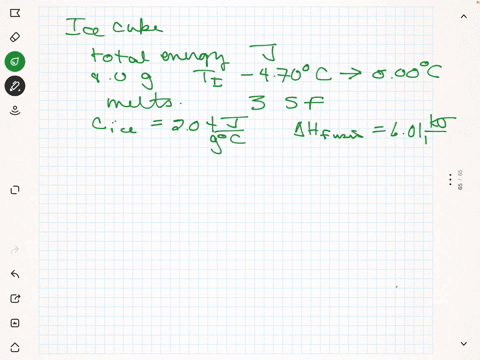 Ice cube
total energy J
8.0 g TI -4.70°C → 0.00°C
melts. 3 SF
Cice = 2.04 J/g°C ΔHfusion = 6.01 kJ/